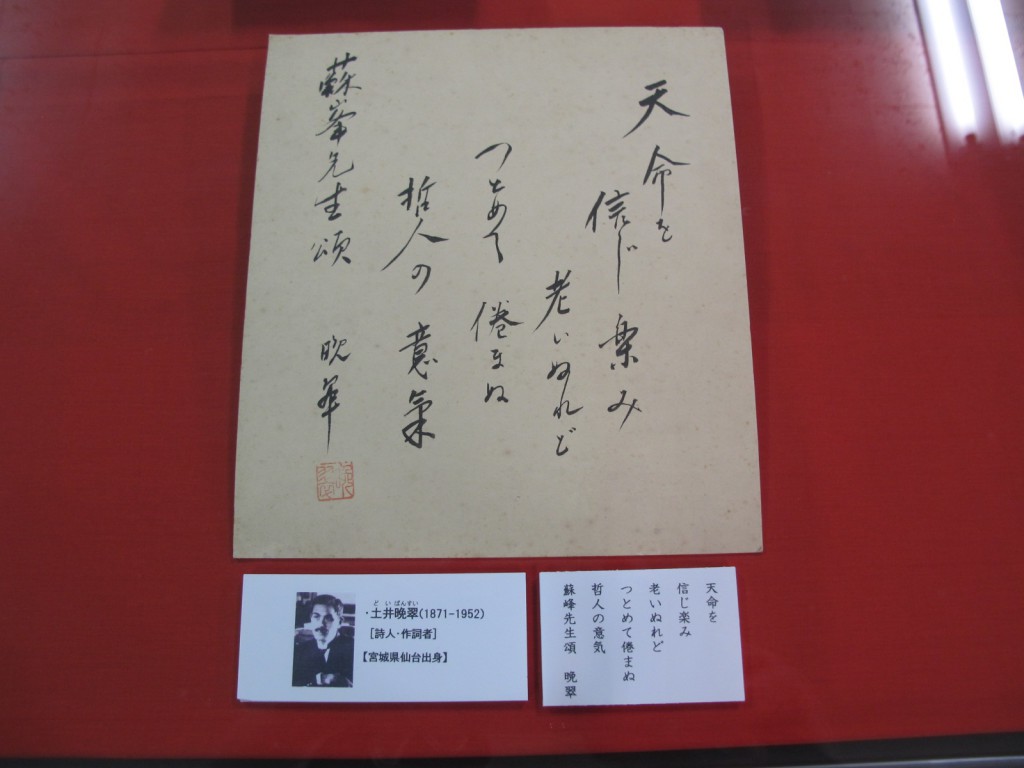 天命を
信じ楽み
老いぬれど
つとめて倦まぬ
哲人の意氣
蘇峯先生頌 晩翠
どいばんすい
・土井晩翠(1871-1952)
[詩人・作詞者]
【宮城県仙台出身】
天命を
信じ楽み
老いぬれど
つとめて倦まぬ
哲人の意気
蘇峰先生頌 晩翠